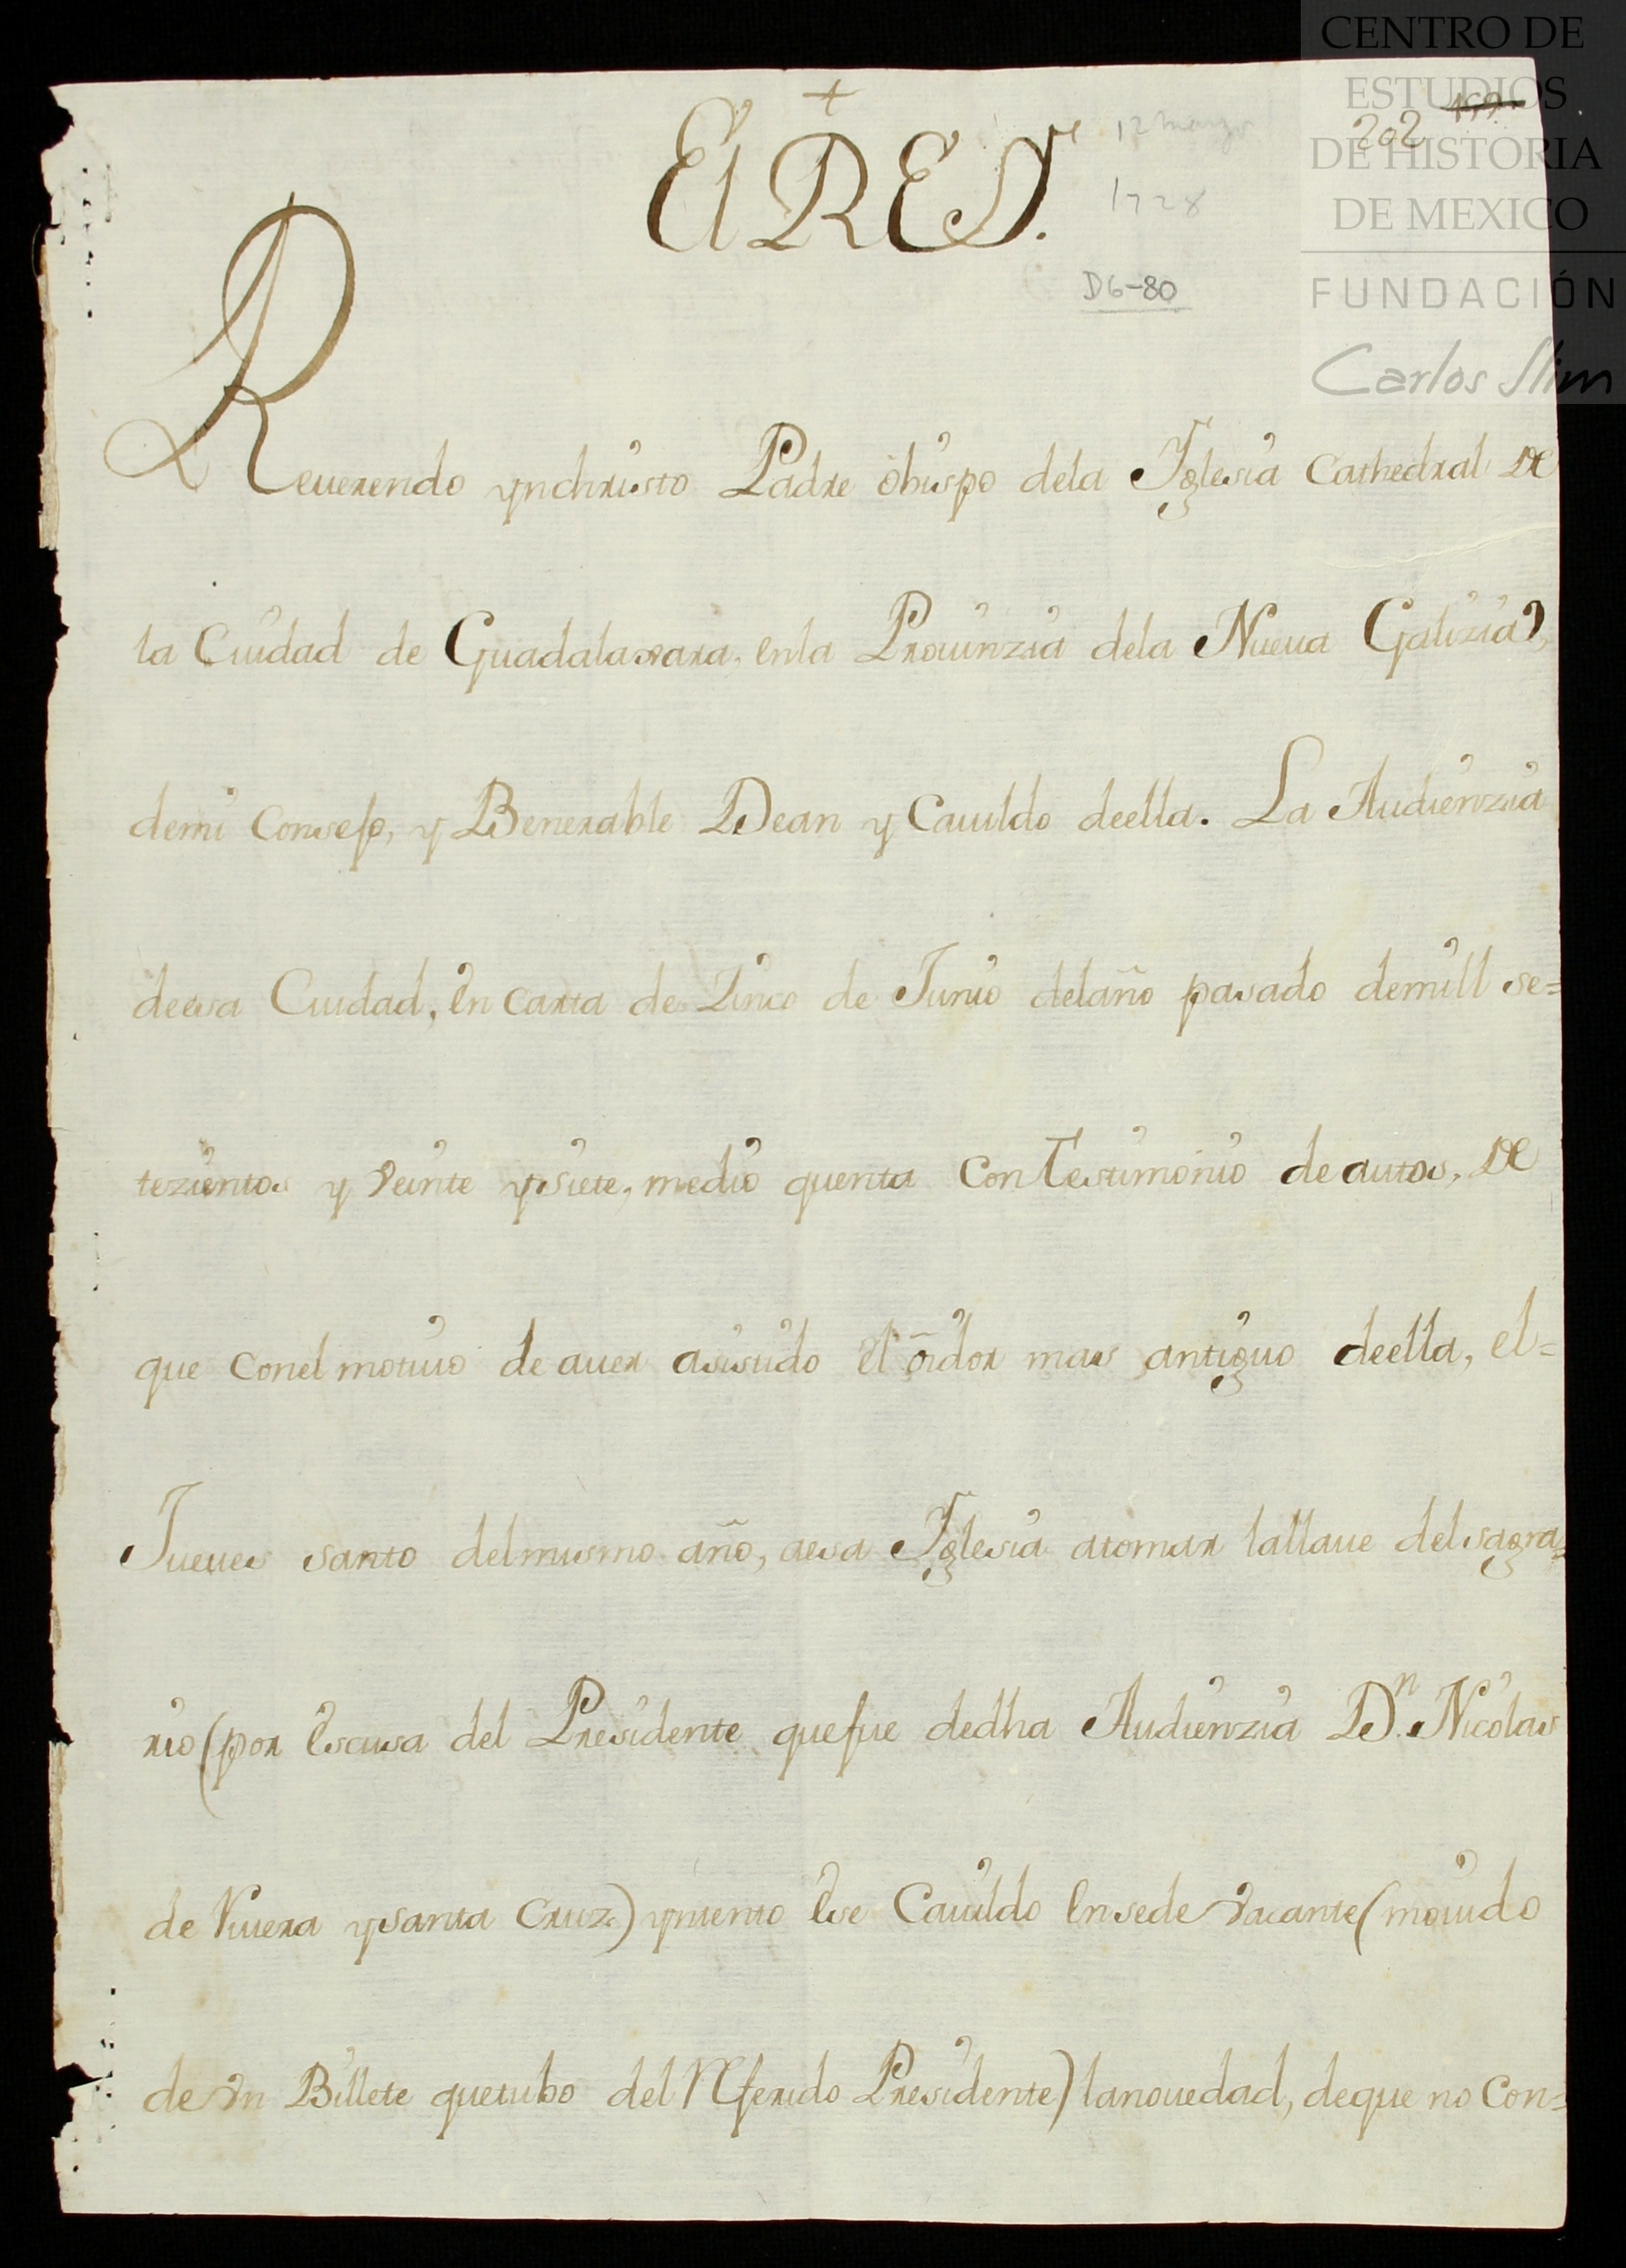 CENTRO DE
ESTUDIOS
DE HISTORIA
DE MEXICO
FUNDACIÓN
Carlos Slim
+
El REY.
12 marzo
1728
202
D6-80
Reuerendo ynchristo Padre obispo dela Iglesia Cathedral de
la Ciudad de Guadalaxara, enla Prouinzia dela Nueua Galizia,
demi Consejo, y Benerable Dean y Cauildo deella. La Audienzia
deesa Ciudad, en carta de Zinco de Junio delaño pasado demill se=
tezientos y veinte ysiete, medio quenta con Testimonio de autos, de
que conel motiuo de auer asistido el oidor mas antiguo deella, el=
Jueues santo delmismo año, aesa Iglesia atomar lallaue delsagra=
rio (por escusa del Presidente quefue dedha Audienzia Dn. Nicolas
de Riuera ysanta Cruz) yntento ese Cauildo ensede vacante (mouido
de vn Billete quetubo del Referido Presidente) lanouedad, deque no con=